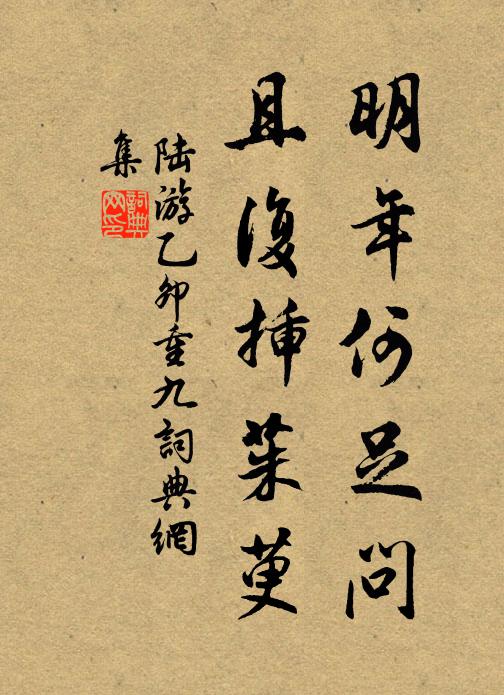 明年何足問
且復挿茱萸
陸游乙卯重九詞典網
集
詞典
网印